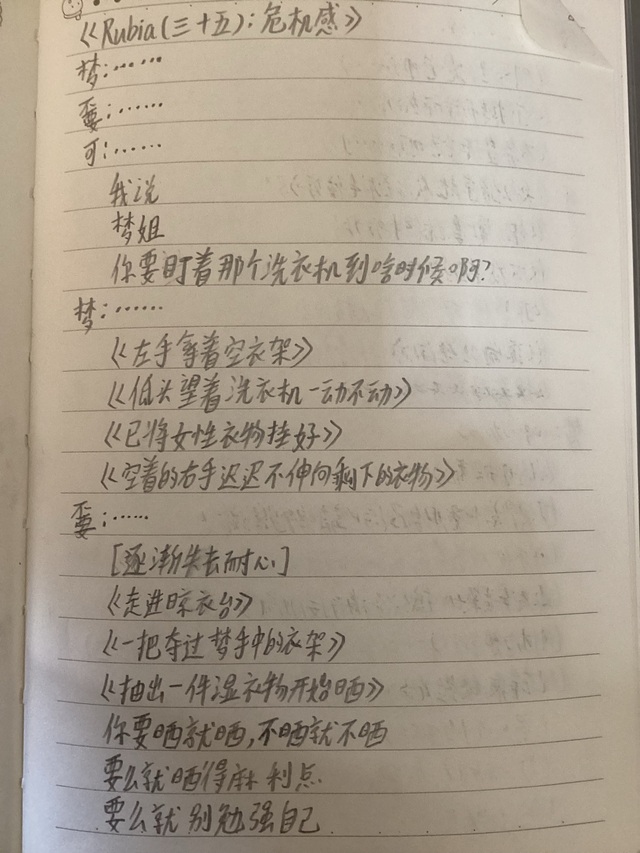 《Rubia(三十五)：危机感》
梦：……
要：……
可：……
我说
梦姐
你要盯着那个洗衣机到啥时候啊？
梦：……
《左手拿着空衣架》
《低头望着洗衣机一动不动》
《已将女性衣物挂好》
《空着的右手迟迟不伸向剩下的衣物》
要：……
[逐渐失去耐心]
《走进晾衣台》
《一把夺过梦手中的衣架》
《抽出一件湿衣物开始晒》
你要晒就晒，不晒就不晒
要么就晒得麻利点
要么就别勉强自己